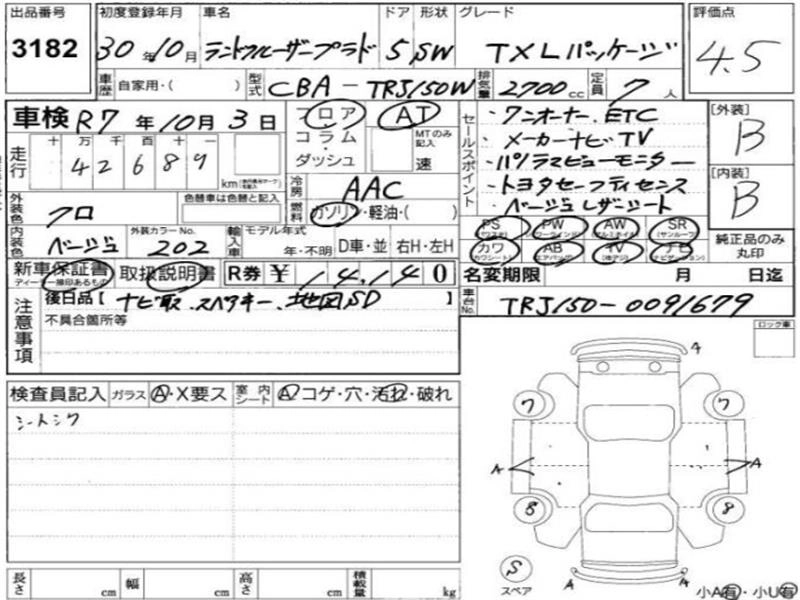 出品番号 初度登録年月 車名 ドア 形状 グレード 評価点
3182 30年10月 ランドクルーザープラド 5 SW TXLパッケージ 4.5
車歴 自家用・( ) 型式 CBA-TRJ150W 排気量 2700cc 定員 7人
車検 R7年10月3日 フロア AT
コラム
ダッシュ MTのみ記入 速
走行 十万千百十
42689 km
冷房 AAC
燃料 ガソリン・軽油・( )
セールスポイント
・ワンオーナー.ETC
・メーカーナビTV
・パノラマビューモニター
・トヨタセーフティセンス
・ベージュレザーシート
[外装] B
[内装] B
純正品のみ丸印
外装色 クロ 色替車は色替と記入
内装色 ベージュ 外装カラーNo. 202 輸入車 モデル年式 年・不明 D車・並 右H・左H
PS PW AW SR (サンルーフ)
カワ AB TV ナビ
新車保証書 取扱説明書 R券 ¥ 14,140
名変期限 月 日迄
注意事項
後日品【ナビ取.スペアキー.地図SD】
不具合箇所等
車台No. TRJ150-0091679
ロック車
検査員記入 ガラス A・X要ス 室内シート A コゲ・穴・汚れ・破れ
シートシワ
A
7 7
A A
8 8
S
スペア
A A
長さ cm 幅 cm 高さ cm 積載量 kg
小A有・小U有